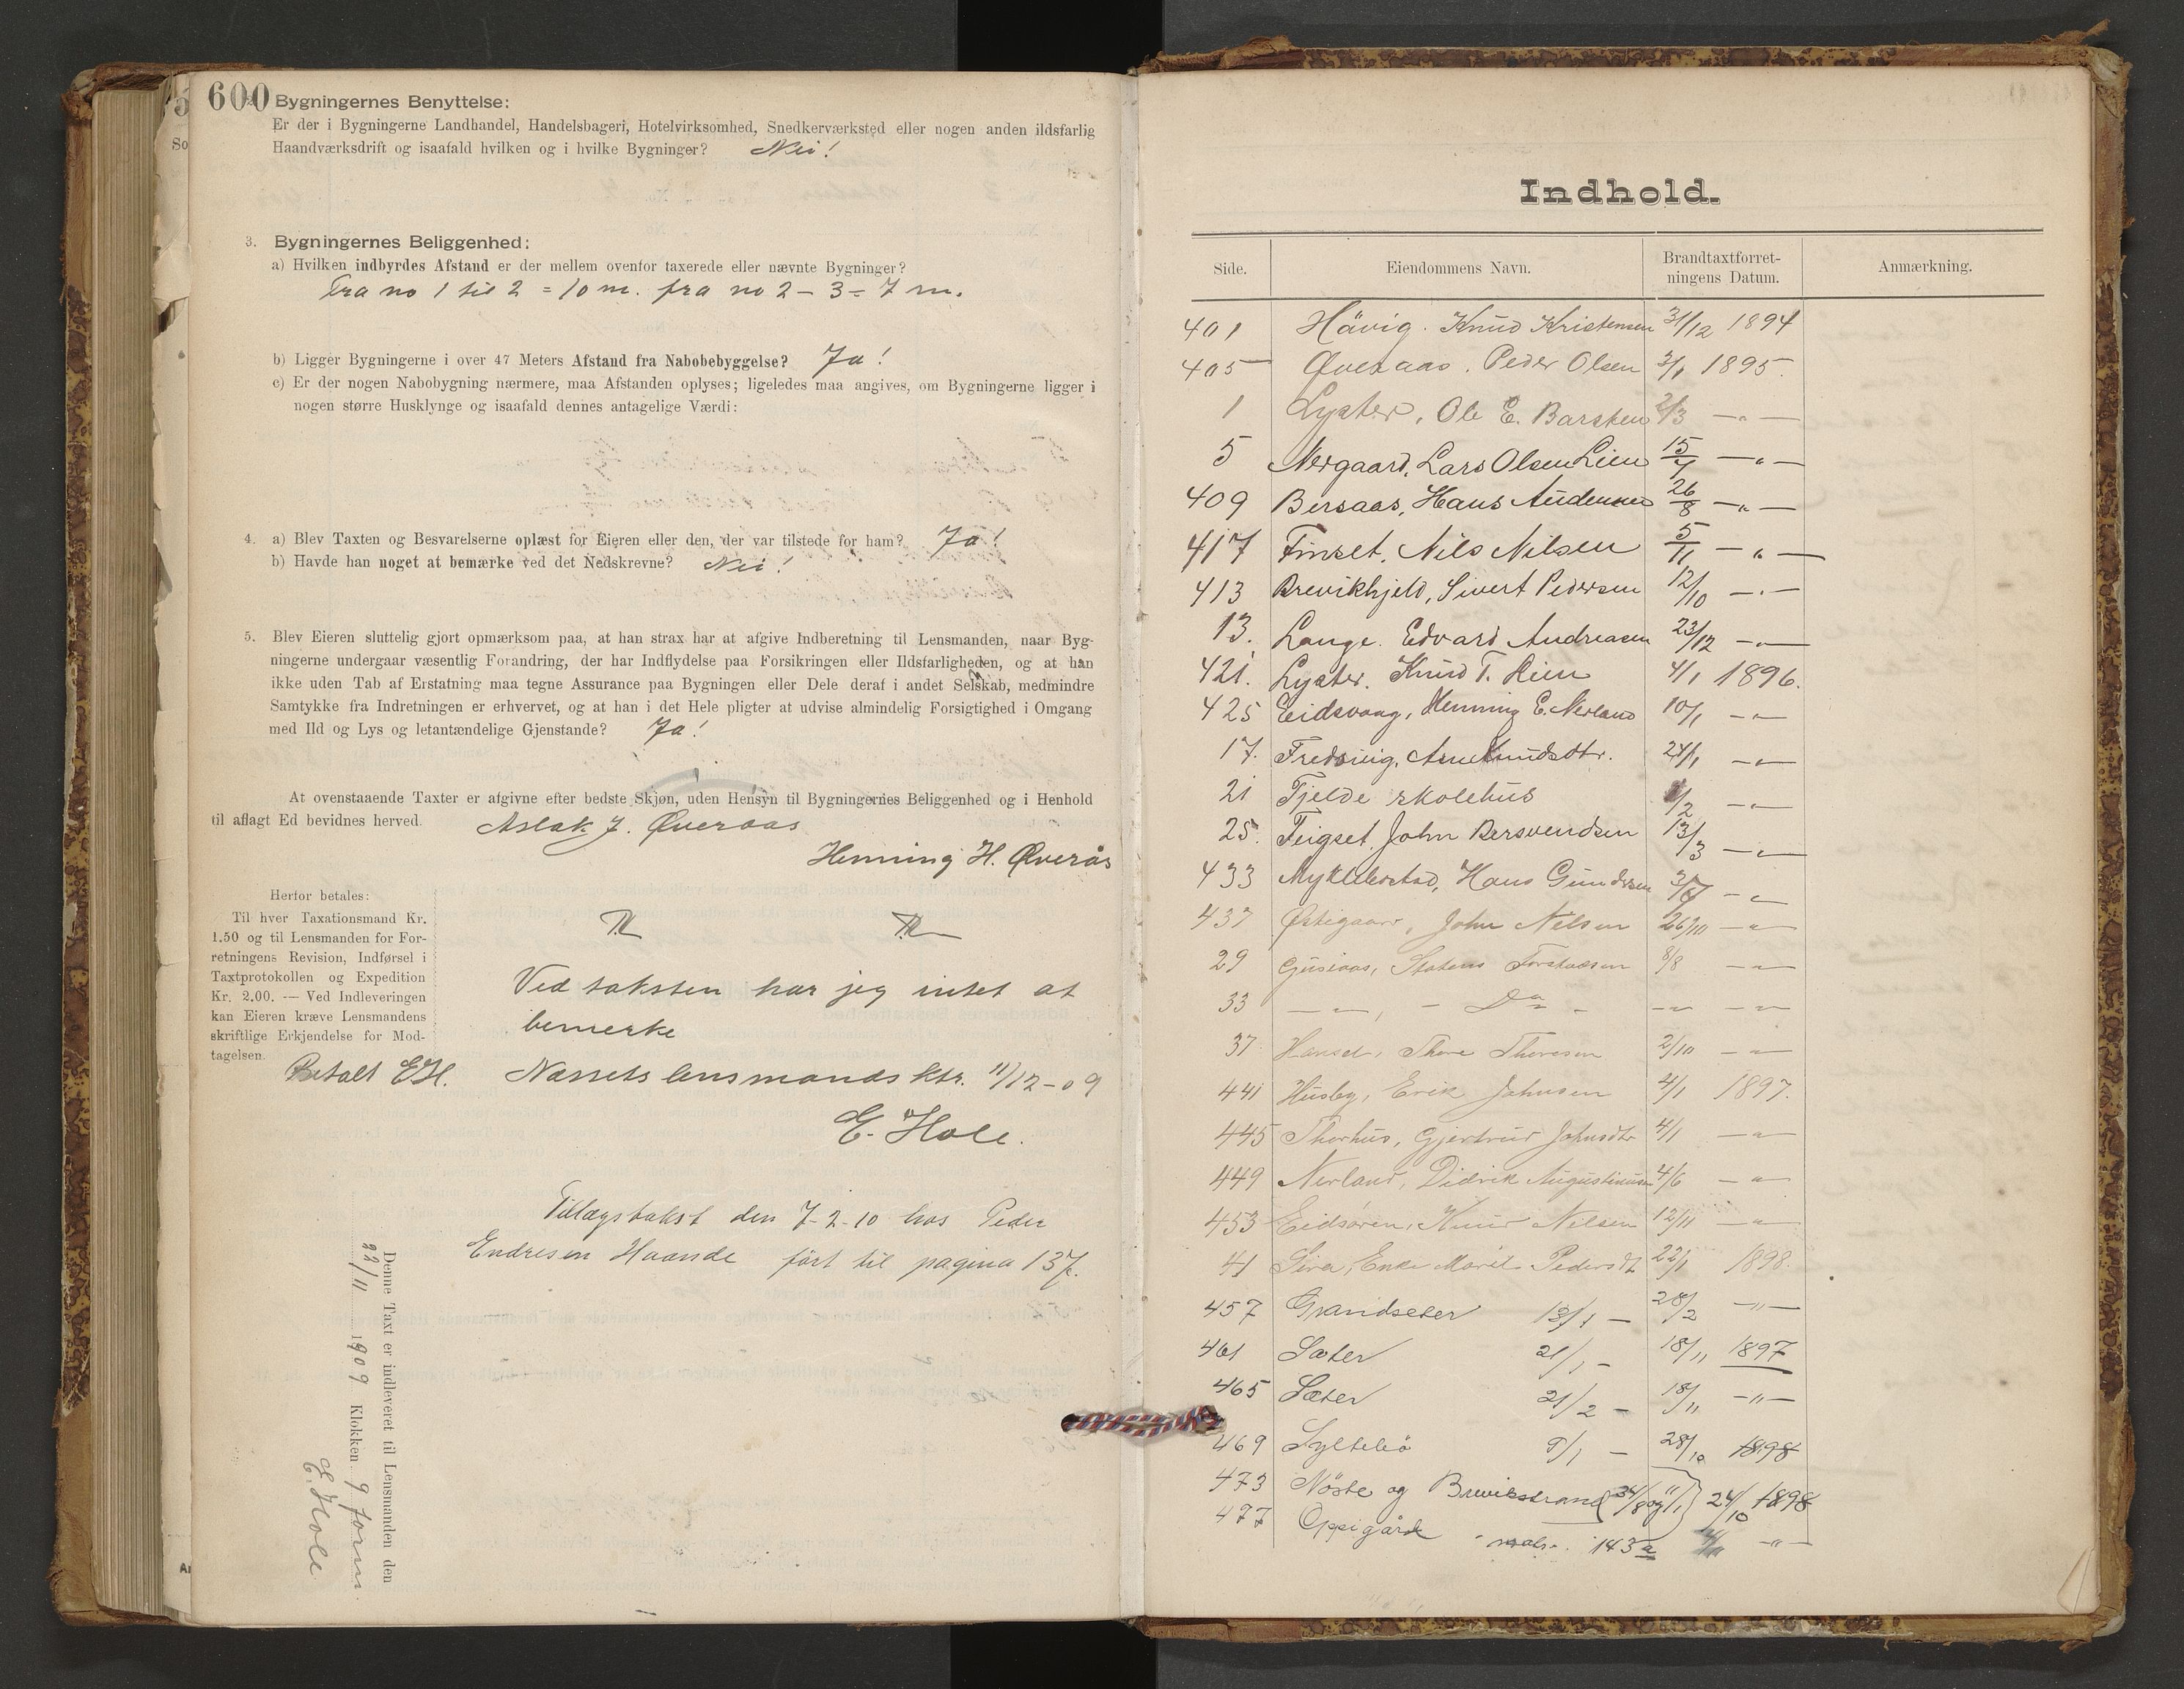 600
Bygningernes Benyttelse:
Er der i Bygningerne Landhandel, Handelsbageri, Hotelvirksomhed, Snedkerværksted eller nogen anden ildsfarlig
Haandværksdrift og isaafald hvilken og i hvilke Bygninger? Nei!
3. Bygningernes Beliggenhed:
a) Hvilken indbyrdes Afstand er der mellem ovenfor taxerede eller nævnte Bygninger?
Fra no 1 til 2 = 10 m. fra no 2 - 3 = 7 m.
b) Ligger Bygningerne i over 47 Meters Afstand fra Nabobebyggelse? Ja!
c) Er der nogen Nabobygning nærmere, maa Afstanden oplyses; ligeledes maa angives, om Bygningerne ligger i
nogen større Husklynge og isaafald dennes antagelige Værdi:
4. a) Blev Taxten og Besvarelserne oplæst for Eieren eller den, der var tilstede for ham? Ja!
b) Havde han noget at bemærke ved det Nedskrevne? Nei!
5. Blev Eieren sluttelig gjort opmærksom paa, at han strax har at afgive Indberetning til Lensmanden, naar Byg-
ningerne undergaar væsentlig Forandring, der har Indflydelse paa Forsikringen eller Ildsfarligheden, og at han
ikke uden Tab af Erstatning maa tegne Assurance paa Bygningen eller Dele deraf i andet Selskab, medmindre
Samtykke fra Indretningen er erhvervet, og at han i det Hele pligter at udvise almindelig Forsigtighed i Omgang
med Ild og Lys og letantændelige Gjenstande? Ja!
At ovenstaaende Taxter er afgivne efter bedste Skjøn, uden Hensyn til Bygningernes Beliggenhed og i Henhold
til aflagt Ed bevidnes herved. Aslak J. Øveraas
Henning H. Øverås
Herfor betales:
Til hver Taxationsmand Kr.
1.50 og til Lensmanden for For-
retningens Revision, Indførsel i
Taxtprotokollen og Expedition
Kr. 2.00. — Ved Indleveringen
kan Eieren kræve Lensmandens
skriftlige Erkjendelse for Mod-
tagelsen.
Betalt EH.
Ved taksten har jeg intet at
bemerke
Nessets lensmands ktr. 11/12-09
E. Hole.
Tillægstakst den 7-2-10 hos Peder
Endresen Haande ført til pagina 137.
Denne Taxt er indleveret til Lensmanden den
22/11 1909 Klokken 9 form
E. Hole
Indhold.
Side. Eiendommens Navn. Brandtaxtforret-
ningens Datum. Anmærkning.
401 Hävig. Knud Kristensen 31/12 1894
405 Øveraas, Peder Olsen 3/1 1895.
1 Lyster, Ole E. Barsten 2/3 — " —
5 Nergaard, Lars Olsen Lien 15/7 — " —
409 Bersaas, Hans Andersen 26/8 — " —
417 Finset, Nils Nilsen 5/11 — " —
413 Brevikhjeld, Sivert Pedersen 12/10 — " —
13. Lange. Edvard Andreasen 23/12 — " —
421. Lyster. Knud T. Lien 4/1 1896.
425 Eidsvaag, Henning E. Nerland 10/1 — " —
17. Fredsvig, Arne Knudsdtr. 24/1 — " —
21 Tjelde skolehus 1/2 — " —
25. Teigset, John Bersvendsen 13/3 — " —
433 Myklebostad, Hans Gundersen 3/7 — " —
437 Østigaard, John Nilsen 26/10 — " —
29 Gusiaas, Torstensen 8/8 — " —
33 — " —, - Do - — " — — " —
37 Hanset, Thore Thoresen 2/10 — " —
441 Husby, Erik Johnsen 4/1 1897.
445 Thorhus, Gjertrud Johnsdtr 4/1 — " —
449 Nerland, Didrik Augustinusen 4/6 — " —
453 Eidsøren, Knud Nilsen 12/11 — " —
41 Sira, Enke Marit Pedersdt 22/1 1898.
457 Grandseter 13/1 — 28/2 — " —
461 Sæter 21/1 - 18/11 1897
465 Sæter 21/2 - 18/11 — " —
469 Syltebø 9/1 — 28/10 1898
473 Nöste og Brevikstrand (34/8 og 11/1) 24/10 1898
477 Oppigård 143 a — " —